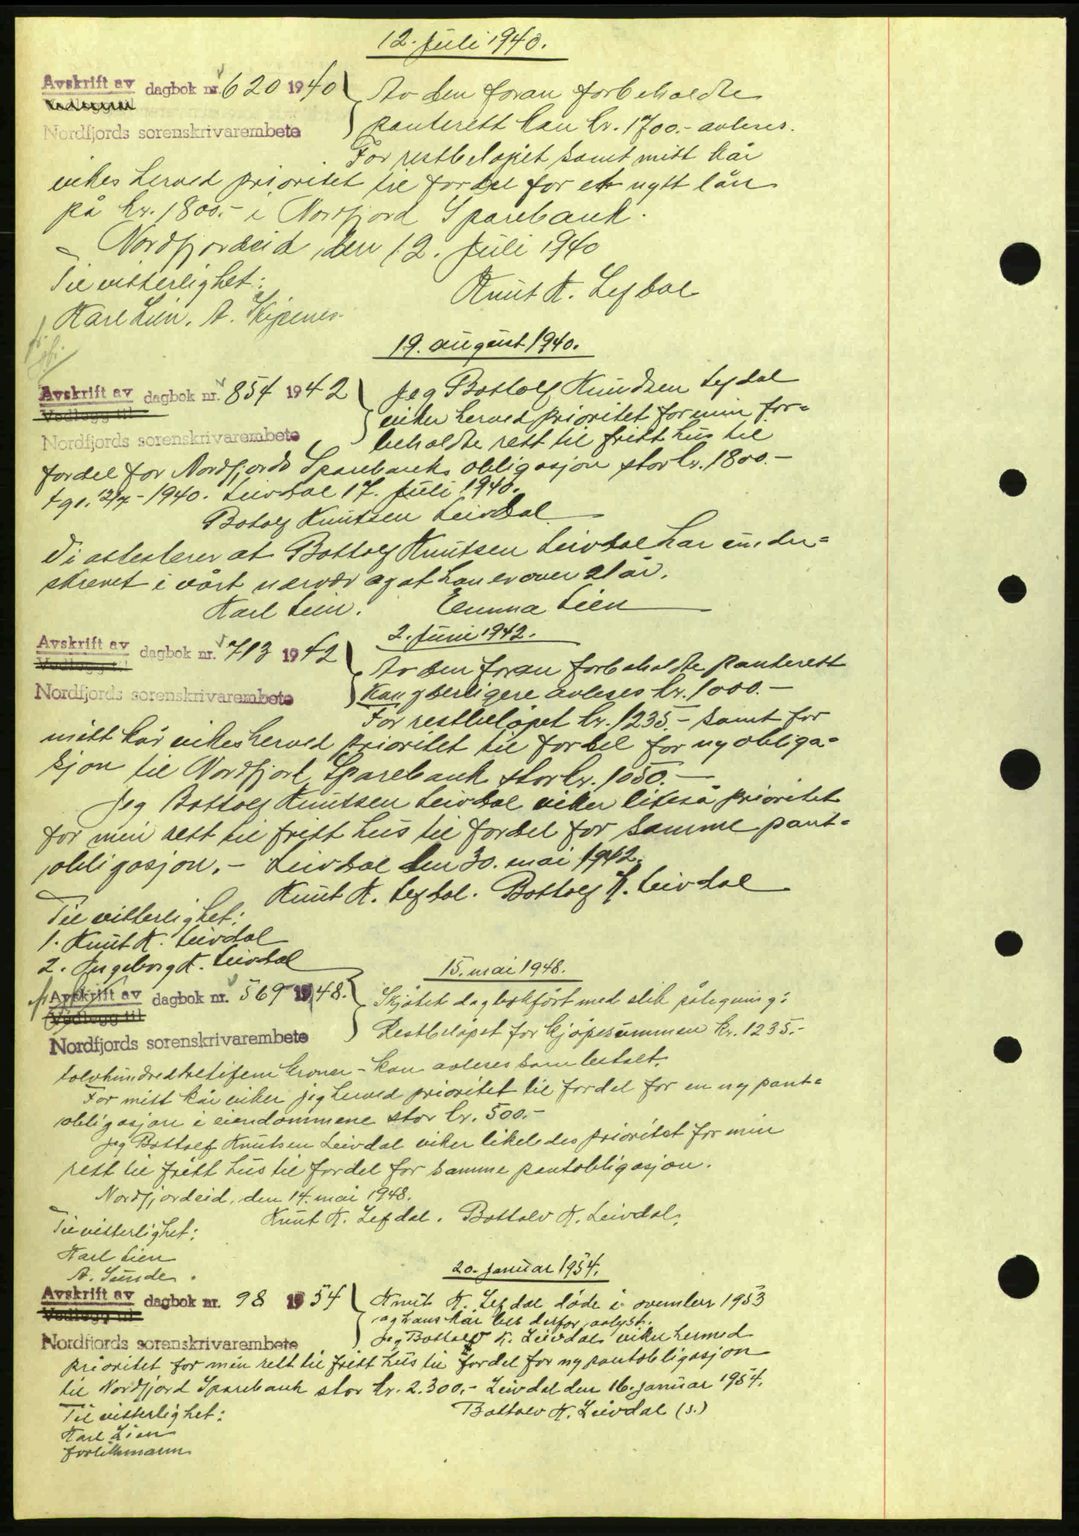 12. Juli 1940.
Avskrift av dagbok nr. 620 1940
Vedlegg til
Nordfjords sorenskrivarembete
Av den foran forbeholdte
panterett kan kr. 1700.- avleses.
For restbeløpet samt mitt kår
vikes herved prioritet til fordel for et nytt lån
på kr. 1800.- i Nordfjord Sparebank.
Nordfjordeid den 12. Juli 1940
Til vitterlighet: Knut K. Lefdal
Karl Lien. A. Skipenes.
19. august 1940.
Avskrift av dagbok nr. 854 1942
Vedlegg til
Nordfjords sorenskrivarembete
Jeg Bottolf Knudsen Lefdal
viker herved prioritet for min for=
beholdte rett til fritt hus til
fordel for Nordfjords Sparebanks obligasjon stor kr. 1800.-
tgl. 12/7-1940. Leivdal 17. Juli 1940.
Botolf Knutsen Leivdal
Vi attesterer at Bottolf Knutsen Leivdal har under=
skrevet i vårt nærvær og at han er over 21 år.
Karl Lein. Emma Lien
2. Juni 1942.
Avskrift av dagbok nr. 713 1942
Vedlegg til
Nordfjords sorenskrivarembete
Av den foran forbeholdte panterett
kan yderligere avleses kr. 1000.-
For restbeløpet kr. 1235.- samt for
mitt kår vikes herved prioritet til fordel for ny obliga=
sjon til Nordfjord Sparebank stor kr. 1050.-
Jeg Bottolf Knutsen Leivdal viker likeså prioritet
for min rett til fritt hus til fordel for samme pant=
obligasjon.- Leivdal den 30. mai 1942.
Knut K. Lefdal. Bottolf K. Leivdal
Til vitterlighet:
1. Knut K. Leivdal
2. Ingeborg K. Leivdal
15. mai 1948.
Avskrift av dagbok nr. 569 1948.
Vedlegg til
Nordfjords sorenskrivarembete
Skjøtet dagbokført med slik påtegning:
Restbeløpet for kjøpesummen kr. 1235.-
tolvhundredtrettifem kroner - kan avleses som betalt.
For mitt kår viker jeg herved prioritet til fordel for en ny pant=
obligasjon i eiendommene stor kr. 500.-
Jeg Bottolf Knutsen Leivdal viker likeledes prioritet for min
rett til fritt hus til fordel for samme pantobligasjon.
Nordfjordeid, den 14. mai 1948.
Til vitterlighet: Knut K. Lefdal. Bottolv K. Leivdal.
Karl Lien
A. Sunde.
20. januar 1954.
Avskrift av dagbok nr. 98 1954
Vedlegg til
Nordfjords sorenskrivarembete
Knut K. Lefdal døde i november 1953
og hans kår bes derfor avlyst.
Jeg Bottolv K. Leivdal viker hermed
prioritet for min rett til fritt hus til fordel for ny pantobligasjon
til Nordfjord Sparebank stor kr. 2.300.- Leivdal den 16. januar 1954.
Til vitterlighet: Bottolv K. Leivdal (s.)
Karl Lien
forlikmann